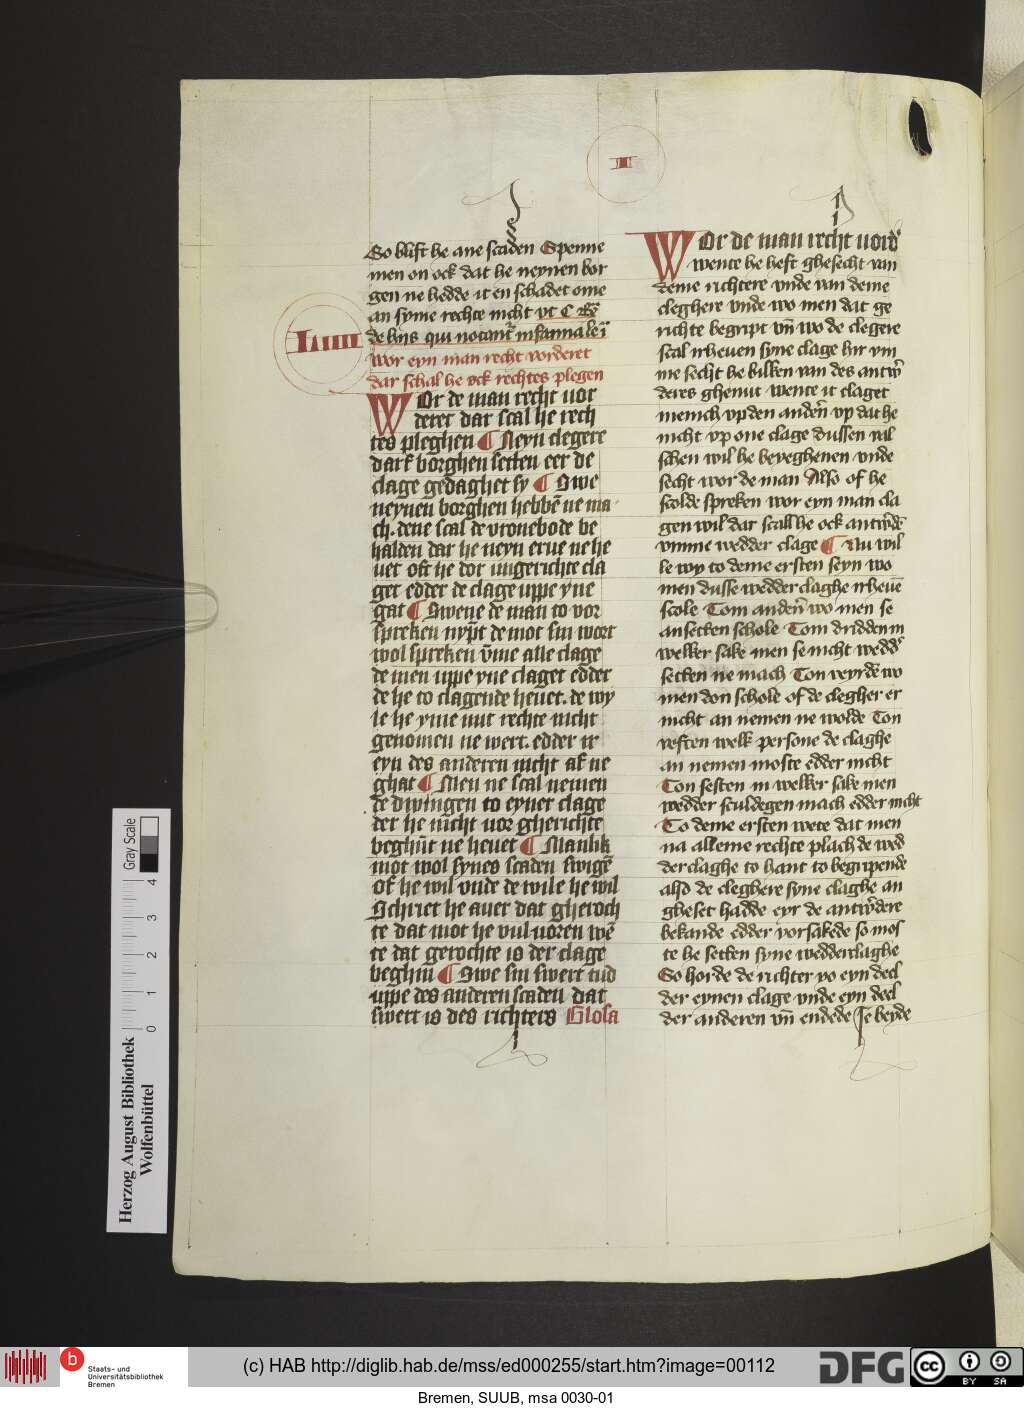 II
So blift he ane scaden Spenne
men on ock dat he neynen bor
gen ne hedde it en schadet ome
an syme rechte nicht vt C
de hijs qui notant infamia
Wor eyn man recht vorderet
dar schal he ock rechtes plegen
LIIIII
Wor de man recht uor
deret dar scal he rech
tes pleghen ¶ Neyn clegere
darf borghen setten eer de
clage gedaghet sy ¶ Swe
neynen borghen hebbē ne ma
ch. dene scal de vronebode be
halden dar he neyn erue ne he
uet oft he dor ungerichte cla
get edder de clage uppe yne
gat ¶ Swene de man to vor
spreken nympt de mot sin wort
wol spreken vmme alle clage
de men uppe yne claget edder
de he to clagende heuet. de wy
le he yme mit rechte nicht
genomen ne wert. edder it
eyn des anderen nicht af ne
ghat ¶ Men ne scal nemen
de dwingen to eyner clage
der he nicht uor gherichte
beghūt ne heuet ¶ Manlik
mot wol synes scaden swigē
of he wil unde de wile he wil
Schriet he auer dat gheroch
te dat mot he vul uoren wē
te dat gerochte is der clage
beghin ¶ Swe sin swert tud
uppe des anderen scaden dat
swert is des richters Glosa
Wor de man recht uord
wente he heft ghesecht van
deme richtere vnde van deme
cleghere vnde wo men dat ge
richte begript vn̄ wo de clegere
scal irheuen syne clage hir vm
me secht he bilken van des antw
deres ghenut wente it claget
mennich vp den andern vp dat he
nicht vp one clage dussen val
schen wil he beyeghenen vnde
secht wor de man Also of he
scolde spreken wor eyn man cla
gen wil dar scall he ock antwde
vmme wedder clage ¶ Nu wil
le wy to deme ersten seyn wo
men dusse wedder claghe irheuē
scole Tom andern wo men se
ansetten schole Tom dridden in
welker sake men se nicht wedd
setten ne mach Ton veyrden wo
men don schole of de clegher er
nicht an nemen ne wolde Ton
veften welk persone de claghe
an nemen moste edder nicht
Ton sesten in welker sake men
wedder sculdegen mach edder nicht
To deme ersten wete dat men
na alleme rechte plach de wed
der claghe to hant to begripende
alsd de cleghere syne claghe an
gheset hadde eyr de antwdere
bekande edder vorsakede so mos
te he setten syne wedderclaghe
So horde de richter vo eyn deel
der eynen clage vnde eyn deel
der anderen vn̄ endede se beyde
Herzog August Bibliothek
Wolfenbüttel
Gray Scale
0 1 2 3 4
b
Staats- und
Universitätsbibliothek
Bremen
(c) HAB http://diglib.hab.de/mss/ed000255/start.htm?image=00112
DFG
cc BY SA
Bremen, SUUB, msa 0030-01